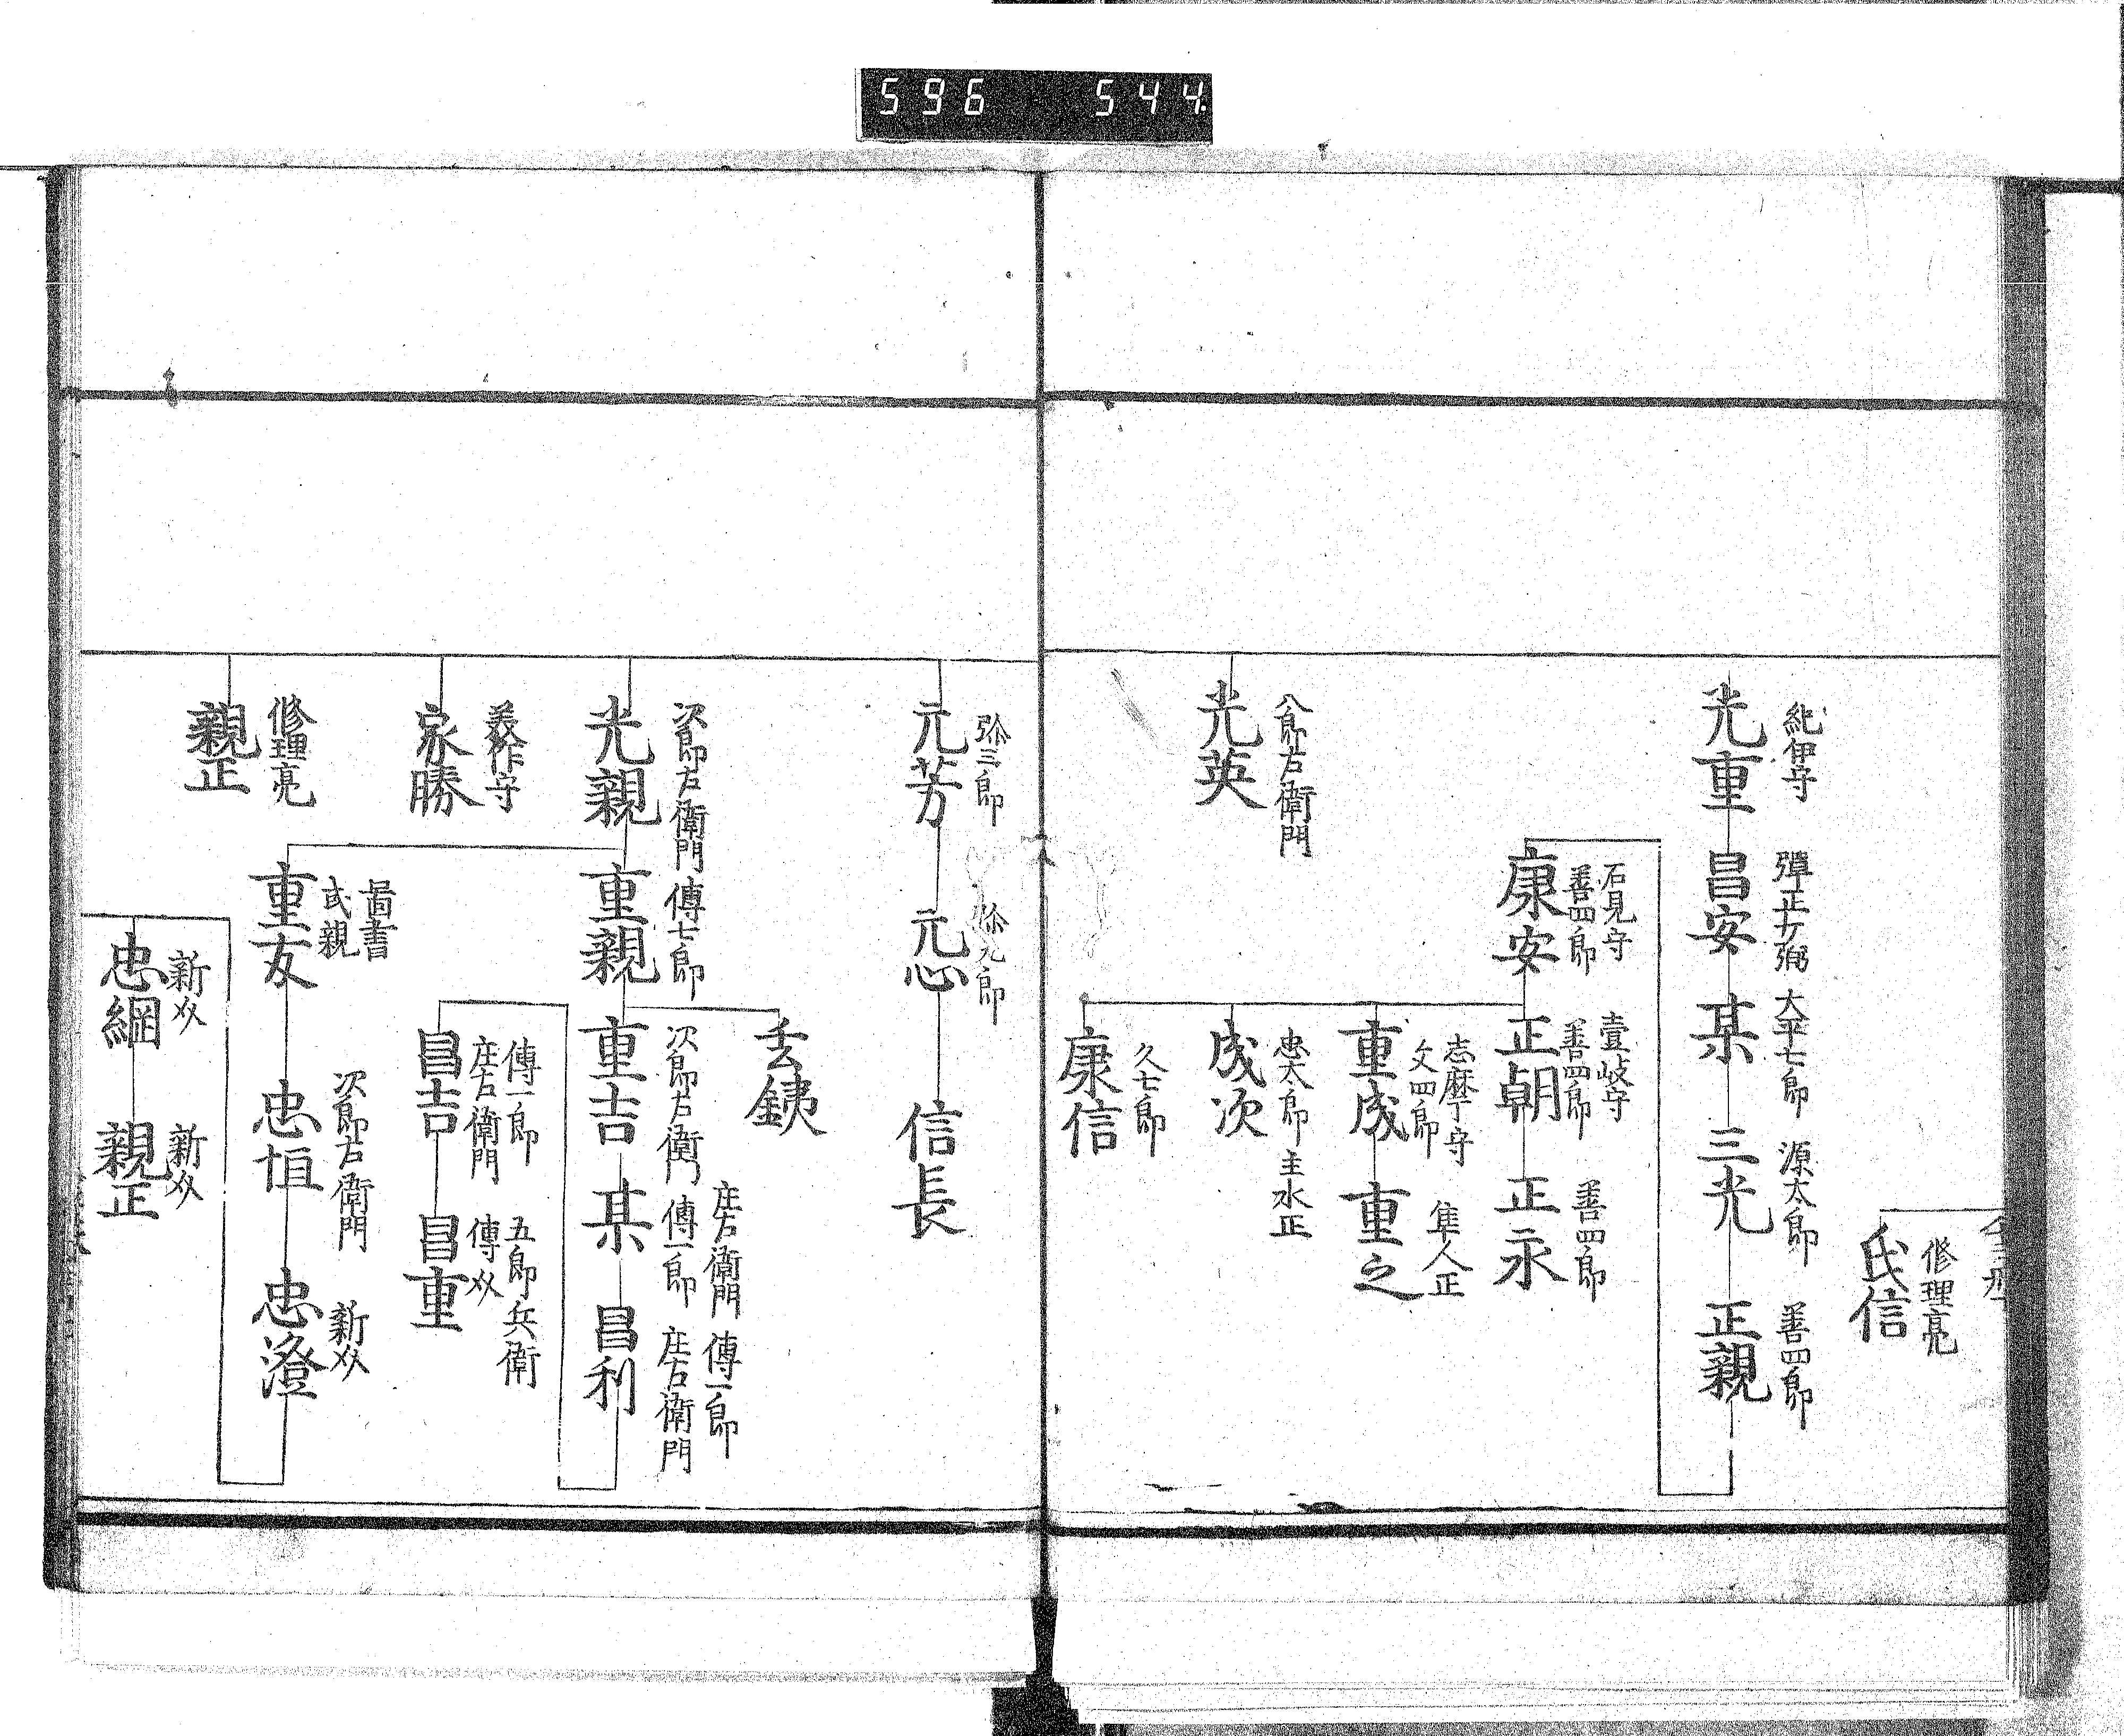 596 544
修理亮
氏信
紀伊守
光重
弾正少弼
昌安
大平七郎
某
源太郎
三光
善四郎
正親
石見守
善四郎
康安
壹岐守
善四郎
正朝
善四郎
正永
志摩守
文四郎
重成
隼人正
重之
忠太郎 主水正
成次
久七郎
康信
八郎右衛門
光英
弥三郎
元芳
弥九郎
元心
信長
次郎右衛門
光親
傳七郎
重親
次郎右衛門
重吉
庄右衛門
傳一郎
某
傳一郎
庄右衛門
昌利
傳一郎
庄右衛門
昌吉
五郎兵衛
傳㸚
昌重
美作守
家勝
圖書
式親
重友
次郎右衛門
忠恒
新㸚
忠澄
新㸚
忠綱
新㸚
親正
修理亮
親正